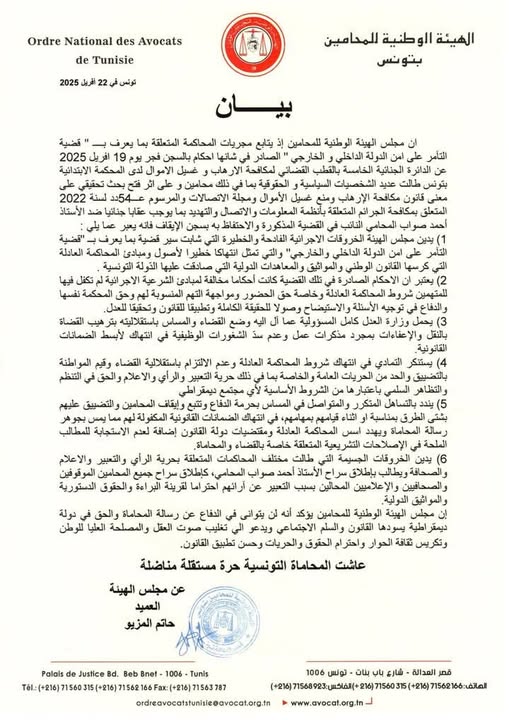 Ordre National des Avocats
de Tunisie
الهيئة الوطنية للمحامين
بتونس
تونس في 22 افريل 2025
بيـــــان
ان مجلس الهيئة الوطنية للمحامين إذ يتابع مجريات المحاكمة المتعلقة بما يعرف بـــ " قضية
التآمر على امن الدولة الداخلي و الخارجي " الصادر في شانها احكام بالسجن فجر يوم 19 افريل 2025
عن الدائرة الجنائية الخامسة بالقطب القضائي لمكافحة الإرهاب و غسيل الاموال لدى المحكمة الابتدائية
بتونس طالت عديد الشخصيات السياسية و الحقوقية بما في ذلك محامين و على اثر فتح بحث تحقيقي على
معنى قانون مكافحة الإرهاب ومنع غسيل الأموال ومجلة الاتصالات والمرسوم عـــ54دد لسنة 2022
المتعلق بمكافحة الجرائم المتعلقة بأنظمة المعلومات والاتصال والتهديد بما يوجب عقابا جنائيا ضد الأستاذ
أحمد صواب المحامي النائب في القضية المذكورة والاحتفاظ به بسجن الإيقاف فإنه يعبر عما يلي :
1) يدين مجلس الهيئة الخروقات الاجرائية الفادحة والخطيرة التي شابت سير قضية بما يعرف بـ "قضية
التآمر على امن الدولة الداخلي والخارجي" والتي تمثل انتهاكا خطيرا لأصول ومبادئ المحاكمة العادلة
التي كرسها القانون الوطني والمواثيق والمعاهدات الدولية التي صادقت عليها الدولة التونسية .
2) يعتبر ان الاحكام الصادرة في تلك القضية كانت أحكاما مخالفة لمبادئ الشرعية الاجرائية لم تكفل فيها
للمتهمين شروط المحاكمة العادلة وخاصة حق الحضور ومواجهة التهم المنسوبة لهم وحق المحكمة نفسها
والدفاع في توجيه الأسئلة والاستيضاح وصولا للحقيقة الكاملة وتطبيقا للقانون وتحقيقا للعدل.
3) يحمل وزارة العدل كامل المسؤولية عما آل اليه وضع القضاء والمساس باستقلاليته بترهيب القضاة
بالنقل والإعفاءات بمجرد مذكرات عمل وعدم سدّ الشغورات الوظيفية في انتهاك لأبسط الضمانات
القانونية.
4) يستنكر التمادي في انتهاك شروط المحاكمة العادلة وعدم الالتزام باستقلالية القضاء وقيم المواطنة
بالتضييق والحد من الحريات العامة والخاصة بما في ذلك حرية التعبير والرأي والاعلام والحق في التنظم
والتظاهر السلمي باعتبارها من الشروط الأساسية لأي مجتمع ديمقراطي
5) يندد بالتساهل المتكرر والمتواصل في المساس بحرمة الدفاع وتتبع وإيقاف المحامين والتضييق عليهم
بشتى الطرق بمناسبة او اثناء قيامهم بمهامهم، في انتهاك الضمانات القانونية المكفولة لهم مما يمس بجوهر
رسالة المحاماة ويهدد اسس المحاكمة العادلة ومقتضيات دولة القانون إضافة لعدم الاستجابة للمطالب
الملحة في الإصلاحات التشريعية المتعلقة خاصة بالقضاء و المحاماة.
6) يدين الخروقات الجسيمة التي طالت مختلف المحاكمات المتعلقة بحرية الرأي والتعبير والاعلام
والصحافة ويطالب بإطلاق سراح الأستاذ أحمد صواب المحامي، كإطلاق سراح جميع المحامين الموقوفين
والصحافيين والإعلاميين المحالين بسبب التعبير عن آرائهم احتراما لقرينة البراءة والحقوق الدستورية
والمواثيق الدولية.
إن مجلس الهيئة الوطنية للمحامين يؤكد أنه لن يتوانى في الدفاع عن رسالة المحاماة والحق في دولة
ديمقراطية يسودها القانون والسلم الاجتماعي ويدعو الي تغليب صوت العقل والمصلحة العليا للوطن
وتكريس ثقافة الحوار واحترام الحقوق والحريات وحسن تطبيق القانون.
عاشت المحاماة التونسية حرة مستقلة مناضلة
عن مجلس الهيئة
العميد
حاتم المزيو
Palais de Justice Bd. Beb Bnet - 1006 - Tunis
Tél.: (+216) 71 560 315 (+216) 71 562 166 Fax: (+216) 71 563 787
قصر العدالة - شارع باب بنات - تونس 1006
الهاتف: 166 562 71 (216+) 315 560 71 (216+) الفاكس: 923 568 71 (216+)
ordreavocatstunisie@avocat.org.tn
www.avocat.org.tn